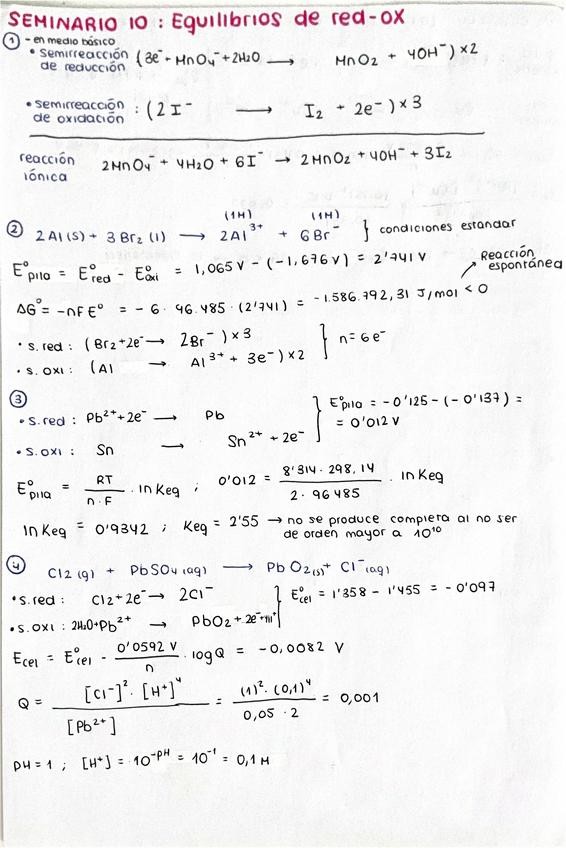 SEMINARIO 10 : Equilibrios de red-ox
① - en medio básico
• semirreacción de reducción (3e⁻ + MnO₄⁻ + 2H₂O ⟶ MnO₂ + 4OH⁻) × 2
• semirreacción de oxidación : (2 I⁻ ⟶ I₂ + 2e⁻) × 3
reacción iónica 2MnO₄⁻ + 4H₂O + 6I⁻ → 2MnO₂ + 4OH⁻ + 3I₂
(1M) (1M)
② 2Al(s) + 3Br₂(l) ⟶ 2Al³⁺ + 6Br⁻ } condiciones estandar
E°pila = E°red - E°oxi = 1,065V - (-1,676V) = 2'741 V
Reacción espontánea
ΔG° = -nFE° = -6 · 96.485 · (2'741) = -1.586.792,31 J/mol < 0
• s.red : (Br₂ + 2e⁻ → 2Br⁻) × 3
• s.oxi : (Al → Al³⁺ + 3e⁻) × 2 } n = 6e⁻
③
• s.red : Pb²⁺ + 2e⁻ ⟶ Pb
• s.oxi : Sn ⟶ Sn²⁺ + 2e⁻
} E°pila = -0'125 - (-0'137) =
= 0'012 V
E°pila = RT / n·F · ln Keq ; 0'012 = 8'314 · 298,14 / 2 · 96485 · ln Keq
ln Keq = 0'9342 ; Keq = 2'55 → no se produce completa al no ser
de orden mayor a 10¹⁰
④ Cl₂(g) + PbSO₄(aq) ⟶ PbO₂(s) + Cl⁻(aq)
• s.red : Cl₂ + 2e⁻ → 2Cl⁻
• s.oxi : 2H₂O + Pb²⁺ → PbO₂ + 2e⁻ + 4H⁺
} E°cel = 1'358 - 1'455 = -0'097
Ecel = E°cel - 0'0592 V / n · log Q = -0,0082 V
Q = [Cl⁻]² · [H⁺]⁴ / [Pb²⁺] = (1)² · (0,1)⁴ / 0,05 · 2 = 0,001
pH = 1 ; [H⁺] = 10⁻ᵖᴴ = 10⁻¹ = 0,1 M